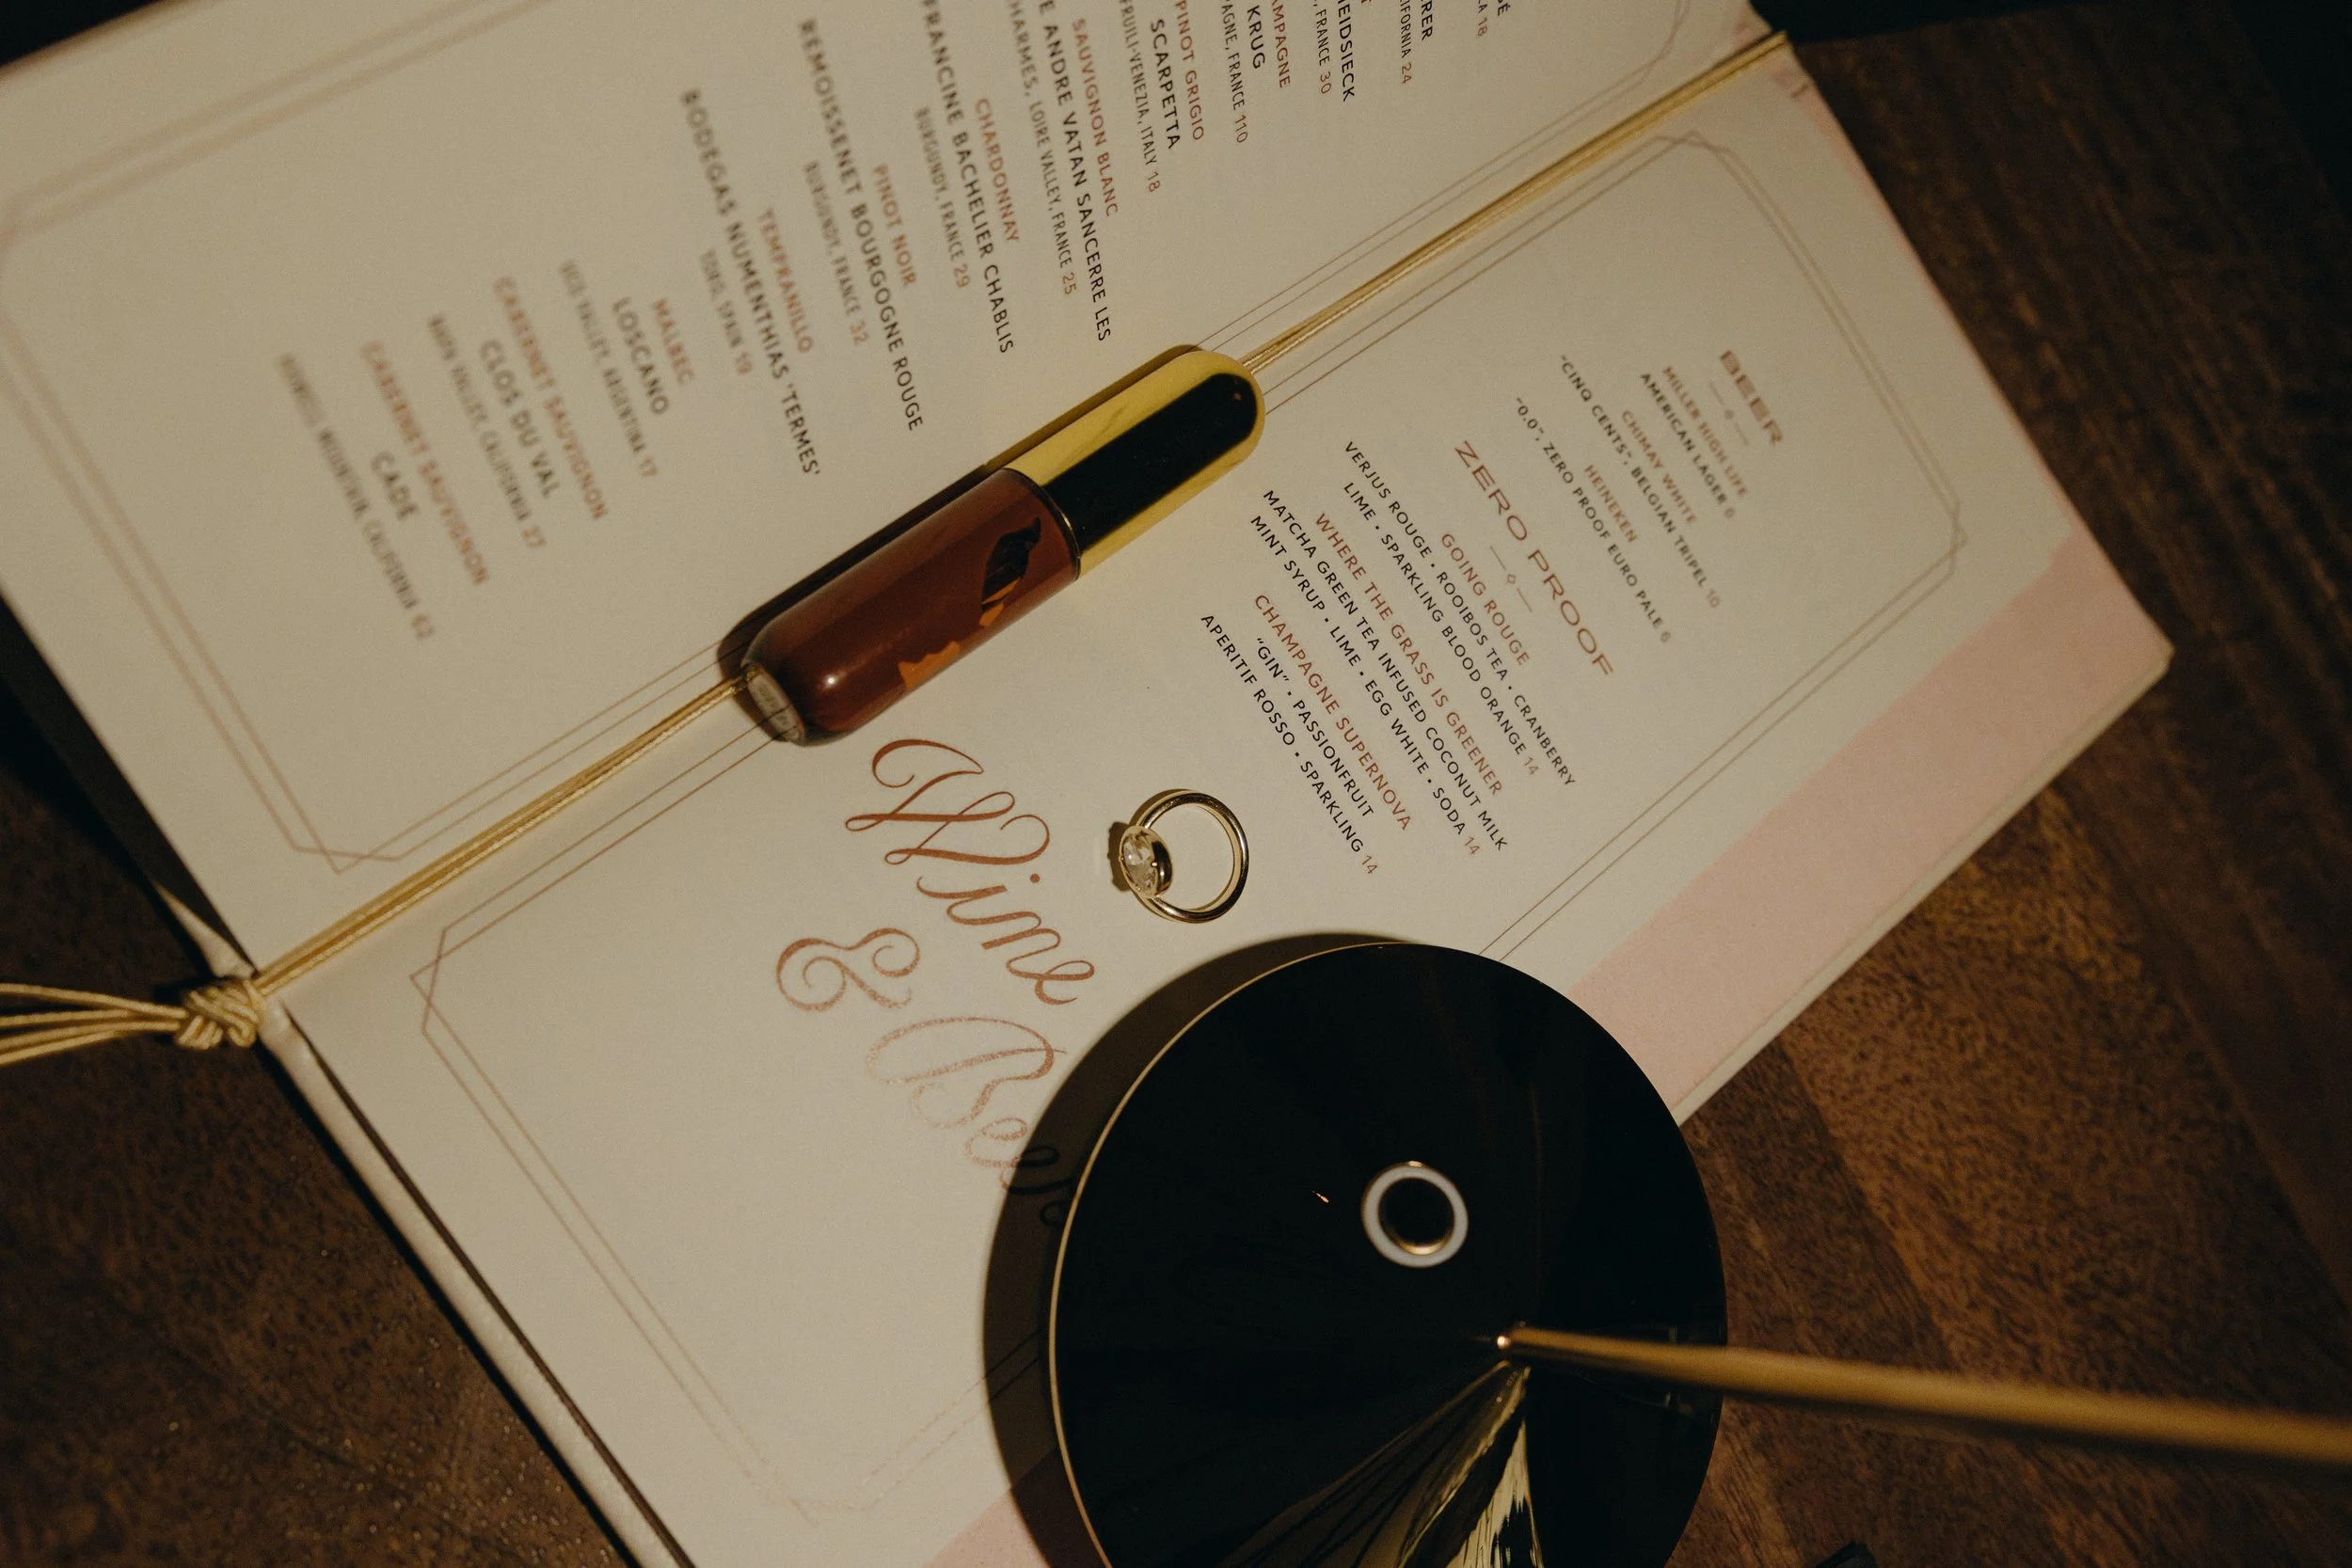 18
RER
IFORNIA 24
HEIDSIECK
, FRANCE 30
KRUG
AGNE, FRANCE 110
PINOT GRIGIO
SCARPETTA
FRIULI-VENEZIA, ITALY 18
SAUVIGNON BLANC
E ANDRE VATAN SANCERRE LES
CHARMES, LOIRE VALLEY, FRANCE 25
CHARDONNAY
FRANCINE BACHELIER CHABLIS
BURGUNDY, FRANCE 29
PINOT NOIR
REMOISSENET BOURGOGNE ROUGE
BURGUNDY, FRANCE 32
TEMPRANILLO
BODEGAS NUMENTHIAS 'TERMES'
TORO, SPAIN 19
MALBEC
LOSCANO
UCO VALLEY, ARGENTINA 17
CABERNET SAUVIGNON
CLOS DU VAL
NAPA VALLEY, CALIFORNIA 27
CABERNET SAUVIGNON
CADE
HOWELL MOUNTAIN, CALIFORNIA 62
BEER
MILLER HIGH LIFE
AMERICAN LAGER 6
CHIMAY WHITE
"CINQ CENTS", BELGIAN TRIPEL 10
HEINEKEN
"0.0", ZERO PROOF EURO PALE 6
ZERO PROOF
GOING ROUGE
VERJUS ROUGE • ROOIBOS TEA • CRANBERRY
LIME • SPARKLING BLOOD ORANGE 14
WHERE THE GRASS IS GREENER
MATCHA GREEN TEA INFUSED COCONUT MILK
MINT SYRUP • LIME • EGG WHITE • SODA 14
CHAMPAGNE SUPERNOVA
"GIN" • PASSIONFRUIT
APERITIF ROSSO • SPARKLING 14
Wine
& Beve